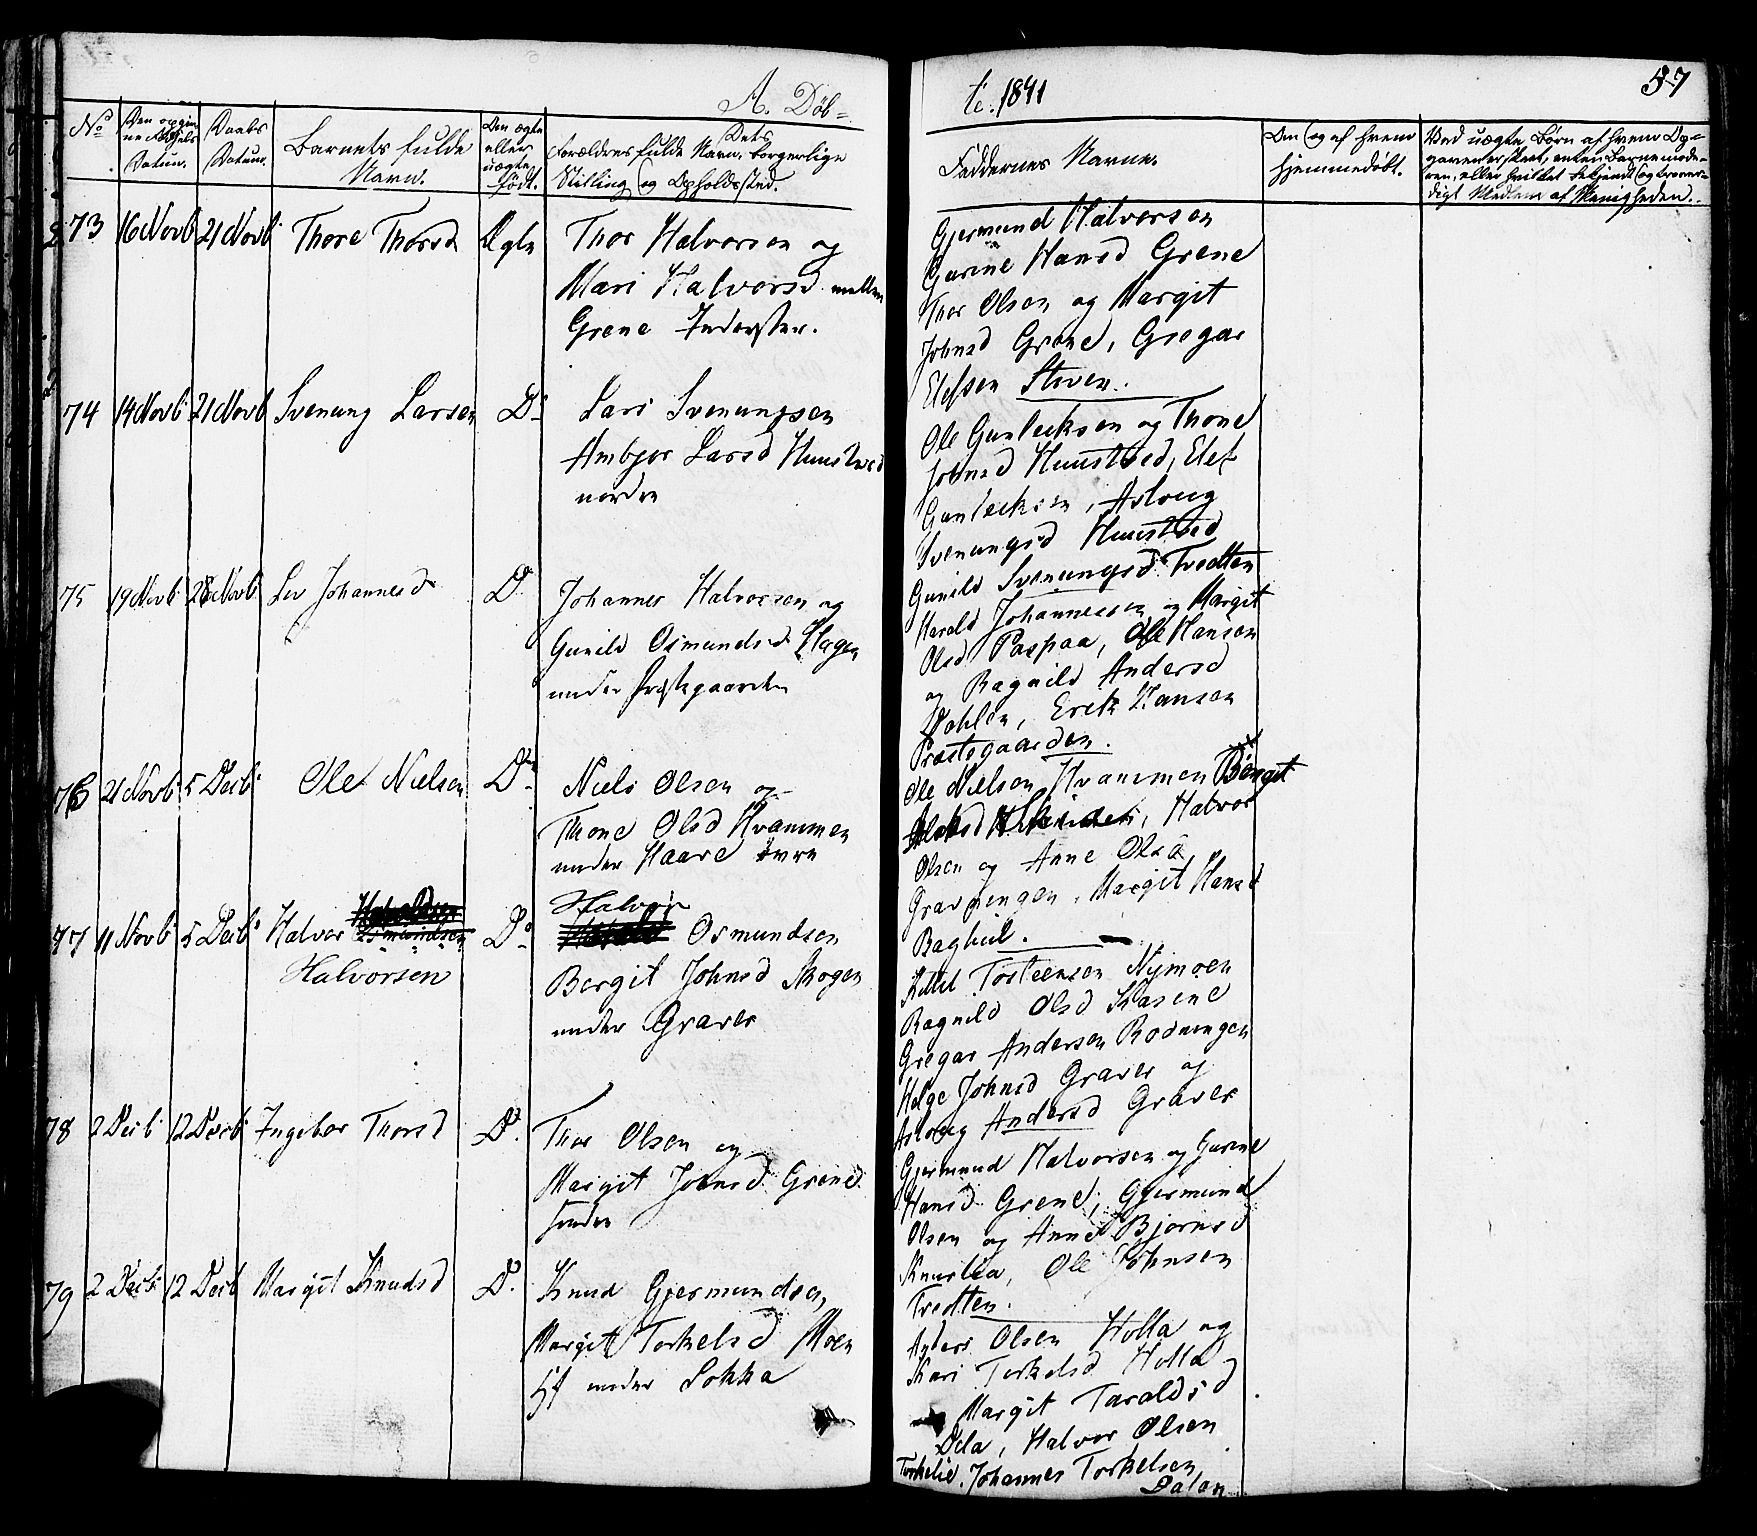 A. Døb=
te. 1841
57
No
Den opgiv
ne Fødsels
Datum.
Daabs
Datum.
Barnets fulde
Navn.
Den ægte
eller
uægte
født.
Forældrenes fulde Navn, Dets borgerlige
Stilling og Opholdssted.
Faddernes Navne.
Om og af hvem
hjemmedøbt.
Ved uægte Børn af hvem Op=
gaven er skeet, enten Barnemode=
ren, eller hvilket bekjendt og trover=
digt Medlem af Menigheden.
73 16 Novb 21 Novb Thore Thorsd Ægte
Thor Halvorsen og
Mari Halvorsd mellem
Grene Inderster.
Gjermund Halvorsen
Gurine Hansd Grene
Thor Olsen og Margit
Johnsd Grene, Gregar
Elefsen Stoven.
74 14 Novb 21 Novb Svenung Larsen Do
Lars Svenungsen
Ambjor Larsd Huustved
nordre
Ole Gunleiksen og Thone
Johnsd Huustved, Elef
Gunleiksen, Asloug
Svenungsd Huustved
Gunild Svenungsd Tvedten
75 19 Novb 28 Novb Liv Johannesd Do
Johannes Halvorsen og
Gunild Osmundsd Hagen
under Præstgaarden
Harald Johannessen og Margit
Olsd Paspaa, Ole Hansen
og Ragnild Andersd
Dahlen, Erek Hansen
Præstegaarden.
76 21 Novb 5 Decb Ole Nielsen Do
Niels Olsen og
Thone Olsd Kvammen
under Haave øvre
Ole Nielsen Kvammen Bergit
Halvor
Olsen og Anne Olsd
Gravningen, Margit Hansd
Baghul.
77 11 Novb 5 Decb Halvor Osmundsen Do
Halvorsen
Halvor
Osmundsen
Bergit Johnsd Skogen
under Graver
Kittil Tosteensen Nymoen
Ragnild Olsd Aasene
Gregar Andersen Rodningen
Helge Johnsd Graver og
Asloug Andersd Graver
78 2 Decb 12 Decb Ingebor Thorsd Do
Thor Olsen og
Margit Johnsd Grene
søndre
Gjermund Halvorsen og Gurine
Hansd Grene, Gjermund
Olsen og Anne Bjørnsd
Knurlia, Ole Johnsen
Tvedten.
79 2 Decb 12 Decb Margit Knudsd Do
Knud Gjermundsen
Margit Torkelsd Moen
under Lokka
Anders Olsen Holla og
Kari Torkelsd Holla
Margit Taraldsd
Dela, Halvor Olsen
Torkelie, Johannes Torkelsen
Dalen